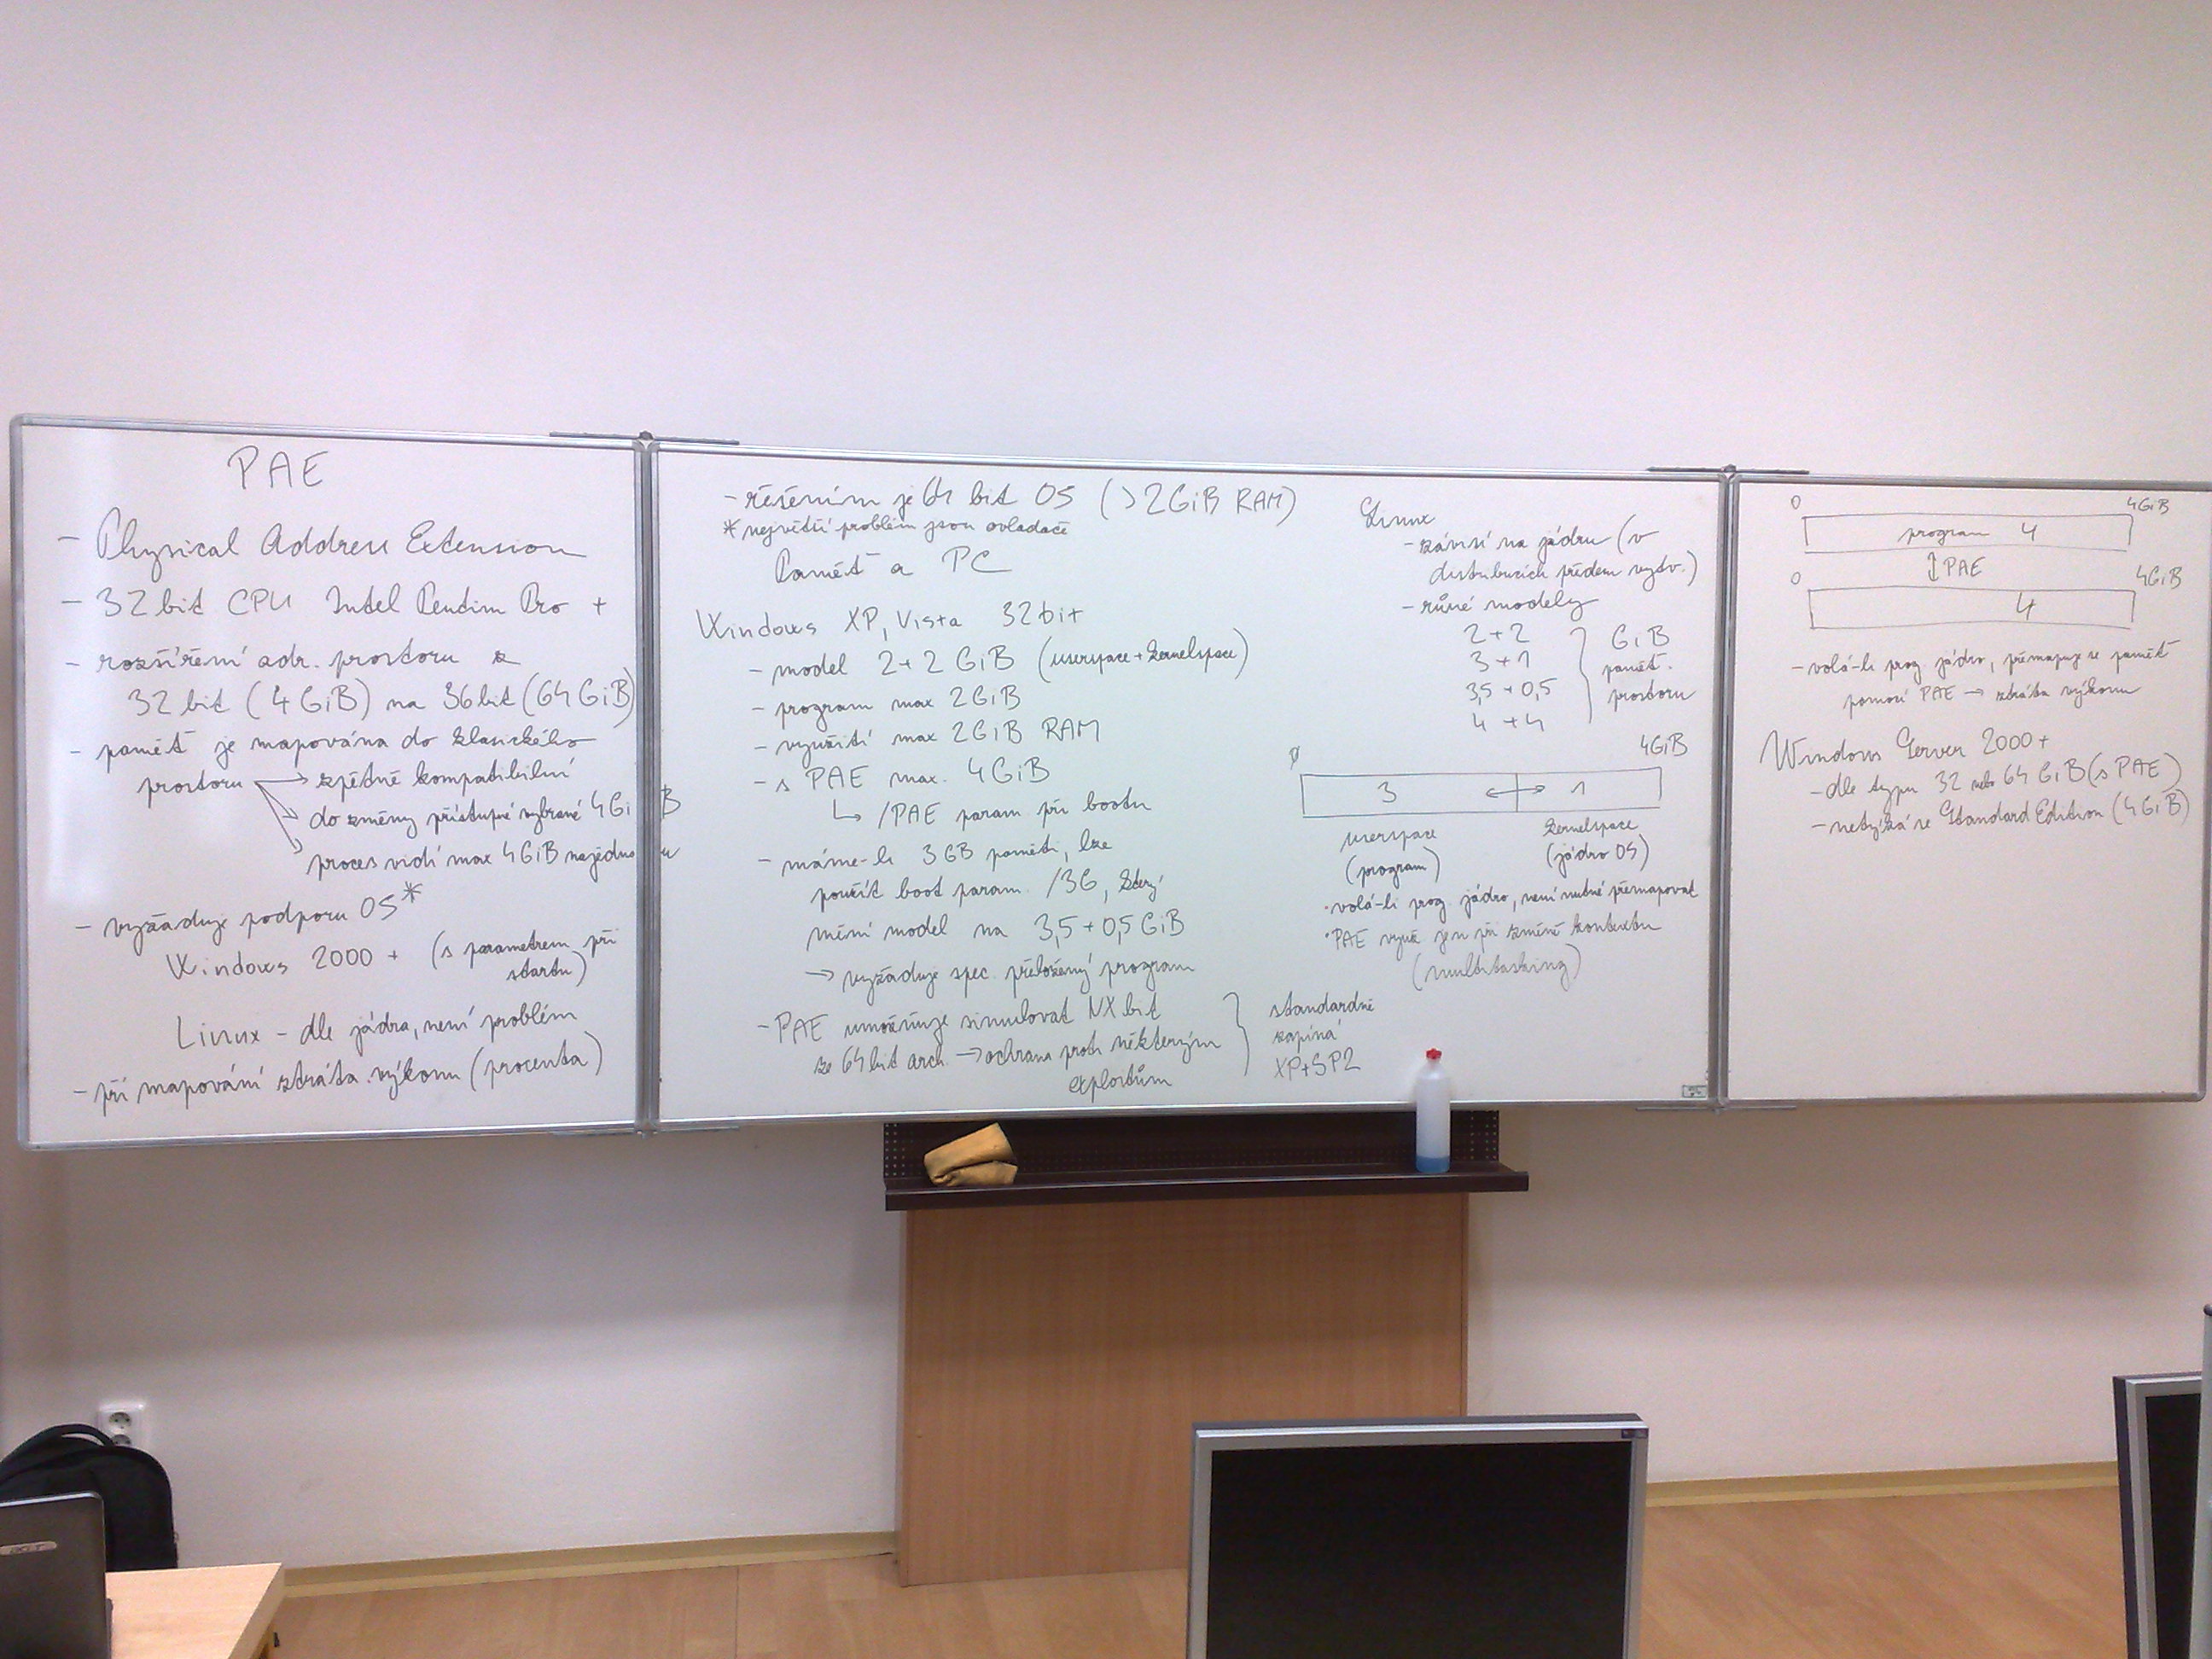 PAE
- Physical Address Extension
- 32 bit CPU Intel Pentim Pro +
- rozšíření adr. prostoru z
32 bit (4 GiB) na 36 bit (64 GiB)
- paměť je mapována do klasického
prostoru → zpětně kompatibilní
→ do změny přístupné vybrané 4GiB
→ proces vidí max 4GiB najednou
- vyžaduje podporu OS*
Windows 2000 + (s parametrem při
startu)
Linux - dle jádra, není problém
- při mapování ztráta výkonu (procenta)
- řešením je 64 bit OS (>2GiB RAM)
* největší problém jsou ovladače
Paměť a PC
Windows XP, Vista 32bit
- model 2+2 GiB (userspace+kernelspace)
- program max 2GiB
- využití max 2GiB RAM
- s PAE max. 4GiB
↳ /PAE param při bootu
- máme-li 3GB paměti, lze
použít boot param. /3G, který
mění model na 3,5+0,5GiB
→ vyžaduje spec. přeložený program
- PAE umožňuje simulovat NX bit
ze 64bit arch. → ochrana proti některým
exploitům
standardně
zapíná
XP+SP2
Linux
- závisí na jádru (v
distribucích předem vytv.)
- různé modely
2+2
3+1
3,5+0,5
4+4
GiB
paměť.
prostoru
0 4GiB
3 ↔ 1
userspace
(program)
kernelspace
(jádro OS)
· volá-li prog. jádro, není nutné přemapovat
· PAE využ jen při změně kontextu
(multitasking)
0 4GiB
program 4
↕ PAE
0 4GiB
4
- volá-li prog. jádro, přemapuje se paměť
pomocí PAE → ztráta výkonu
Windows Server 2000+
- dle typu 32 nebo 64 GiB (s PAE)
- netýká se Standard Edition (4GiB)
acer